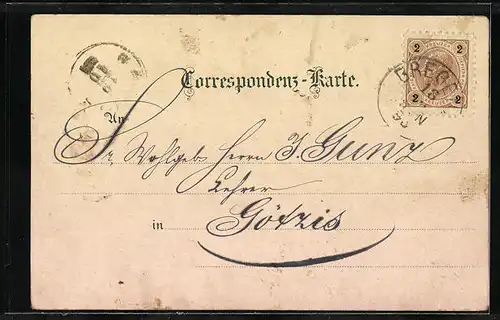 Correspondenz-Karte.
2 2
BREG
2 2
An
Sr. Wohlgeb. Herrn J. Gunz
Lehrer
in Götzis